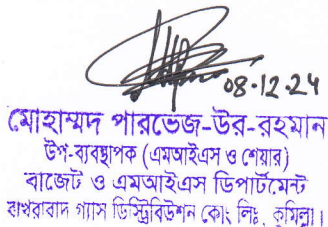 08.12.24
মোহাম্মদ পারভেজ-উর-রহমান
উপ-ব্যবস্থাপক (এমআইএস ও শেয়ার)
বাজেট ও এমআইএস ডিপার্টমেন্ট
বাখরাবাদ গ্যাস ডিস্ট্রিবিউশন কোং লিঃ, কুমিল্লা।